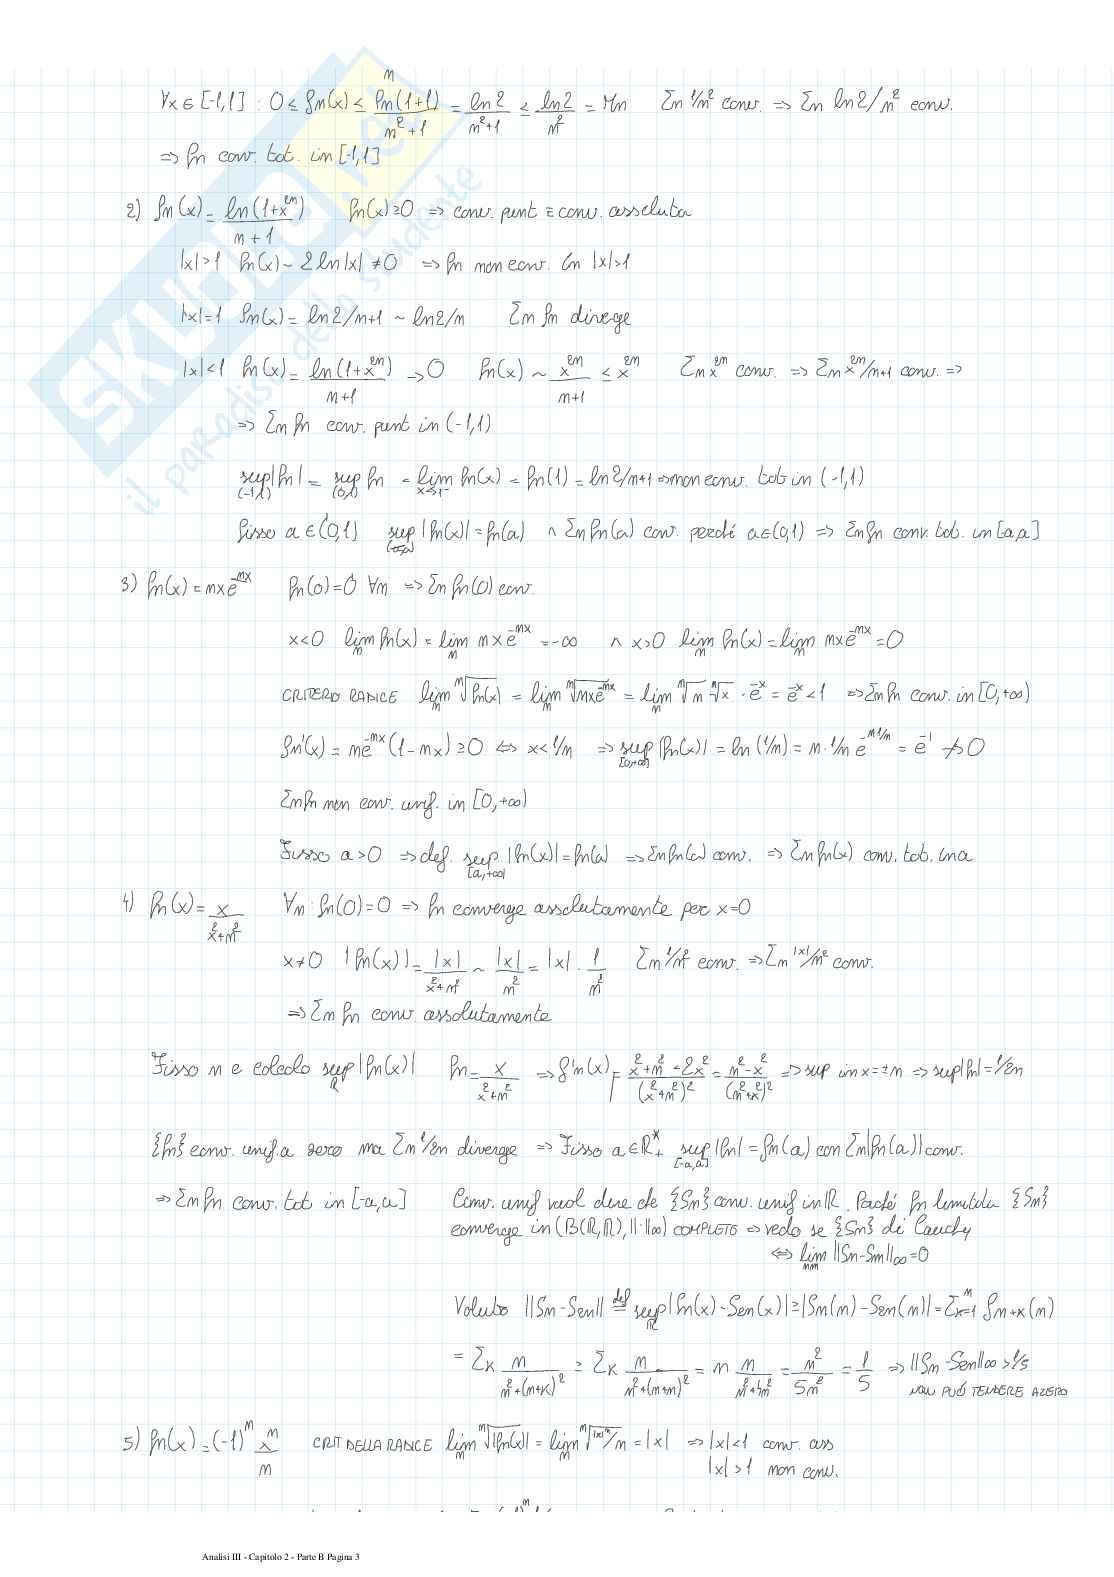 ∀x∈[-1,1] : 0 ≤ fn(x) ≤ ln(1+1)/n²+1 = ln2/n²+1 ≤ ln2/n² = Mn   Σn 1/n² conv. ⇒ Σn ln2/n² conv.
⇒ fn conv. tot. in [-1,1]
2) fn(x) = ln(1+x²ⁿ)/n+1   fn(x)≥0 ⇒ conv. punt è conv. assoluta
|x|>1 fn(x) ~ 2ln|x| ≠ 0 ⇒ fn non conv. in |x|>1
|x|=1 fn(x) = ln2/n+1 ~ ln2/n   Σn fn diverge
|x|<1 fn(x) = ln(1+x²ⁿ)/n+1 → 0   fn(x) ~ x²ⁿ/n+1 ≤ x²ⁿ   Σn x²ⁿ conv. ⇒ Σn x²ⁿ/n+1 conv. ⇒
⇒ Σn fn conv. punt in (-1,1)
sup(-1,1) |fn| = sup(0,1) fn = lim x→1⁻ fn(x) = fn(1) = ln2/n+1 ⇒ non conv. tot in (-1,1)
fisso a∈(0,1)   sup |fn(x)| = fn(a) ∧ Σn fn(a) conv. perché a∈(0,1) ⇒ Σn fn conv. tot. in [a,a]
3) fn(x) = nxe⁻ⁿˣ   fn(0)=0 ∀n ⇒ Σn fn(0) conv.
x<0 lim n fn(x) = lim n nxe⁻ⁿˣ = -∞ ∧ x>0 lim n fn(x) = lim n nxe⁻ⁿˣ = 0
CRITERIO RADICE lim n ⁿ√fn(x) = lim n ⁿ√nxe⁻ⁿˣ = lim n ⁿ√n ⁿ√x · e⁻ˣ = e⁻ˣ < 1 ⇒ Σn fn conv. in [0,+∞)
fn'(x) = ne⁻ⁿˣ(1-nx) ≥ 0 ⇔ x<1/n ⇒ sup[0,+∞) |fn(x)| = ln(1/n) = n·1/n e⁻ⁿ¹/ⁿ = e⁻¹ ↛ 0
Σn fn non conv. unif. in [0,+∞)
Fisso a>0 ⇒ def. sup[a,+∞) |fn(x)| = fn(a) ⇒ Σn fn(a) conv. ⇒ Σn fn(x) conv. tot. in a
4) fn(x) = x/x²+n²   ∀n : fn(0)=0 ⇒ fn converge assolutamente per x=0
x≠0 |fn(x)| = |x|/x²+n² ~ |x|/n² = |x| · 1/n²   Σn 1/n² conv. ⇒ Σn |x|/n² conv.
⇒ Σn fn conv. assolutamente
Fisso n e calcolo sup ℝ |fn(x)|   fn = x/x²+n² ⇒ f'n(x) = x²+n²-2x²/(x²+n²)² = n²-x²/(n²+x²)² ⇒ sup in x=±n ⇒ sup|fn| = 1/2n
{fn} conv. unif. a zero ma Σn 1/2n diverge ⇒ Fisso a∈ℝ*₊ sup[-a,a] |fn| = fn(a) con Σn|fn(a)| conv.
⇒ Σn fn conv. tot in [-a,a]   Conv. unif vuol dire che {Sn} conv. unif in ℝ. Poiché fn limitata {Sn}
converge in (B(ℝ,ℝ), ||·||∞) COMPLETO ⇒ vedo se {Sn} di Cauchy
⇔ lim nm ||Sn-Sm||∞ = 0
Valuto ||Sn-S2n|| def= sup ℝ |fn(x)-S2n(x)| ≥ |Sn(n)-S2n(n)| = Σⁿk=1 fn+k(n)
= Σk n/n²+(n+k)² ≥ Σk n/n²+(n+n)² = n n/n²+4n² = n²/5n² = 1/5 ⇒ ||Sn-S2n||∞ > 1/5
NON PUÒ TENDERE A ZERO
5) fn(x) = (-1)ⁿ xⁿ/n   CRIT DELLA RADICE lim n ⁿ√|fn(x)| = lim n ⁿ√|x|ⁿ/n = |x| ⇒ |x|<1 conv. ass
|x|>1 non conv.
SKUOLA.net
il paradiso dello studente
Analisi III - Capitolo 2 - Parte B Pagina 3